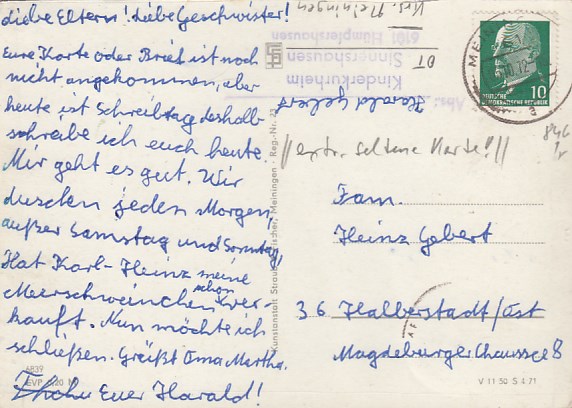 Liebe Eltern! Liebe Geschwister!
Eure Karte oder Brief ist noch
nicht angekommen, aber
heute ist Schreibtag deshalb
schreibe ich euch heute.
Mir geht es gut. Wir
duschen jeden Morgen,
außer Samstag und Sonntag
Hat Karl-Heinz meine
Meerschweinchen schon ver-
kauft. Nun möchte ich
schließen. Grüßt Oma Martha.
Euer Harald!
6839
EVP 0,20 M
Kunstanstalt Straub & Fischer, Meiningen · Reg.-Nr. 23
Abs.: Harald Gebert
Kinderkurheim
Sinnershausen
OT
6101 Hümpfershausen
Krs. Meiningen
MEIN
10
DEUTSCHE
DEMOKRATISCHE REPUBLIK
//extr. seltene Karte!//
Fam.
Heinz Gebert
36 Halberstadt/Ost
Magdeburger Chaussee 8
V 11 50 S 4 71